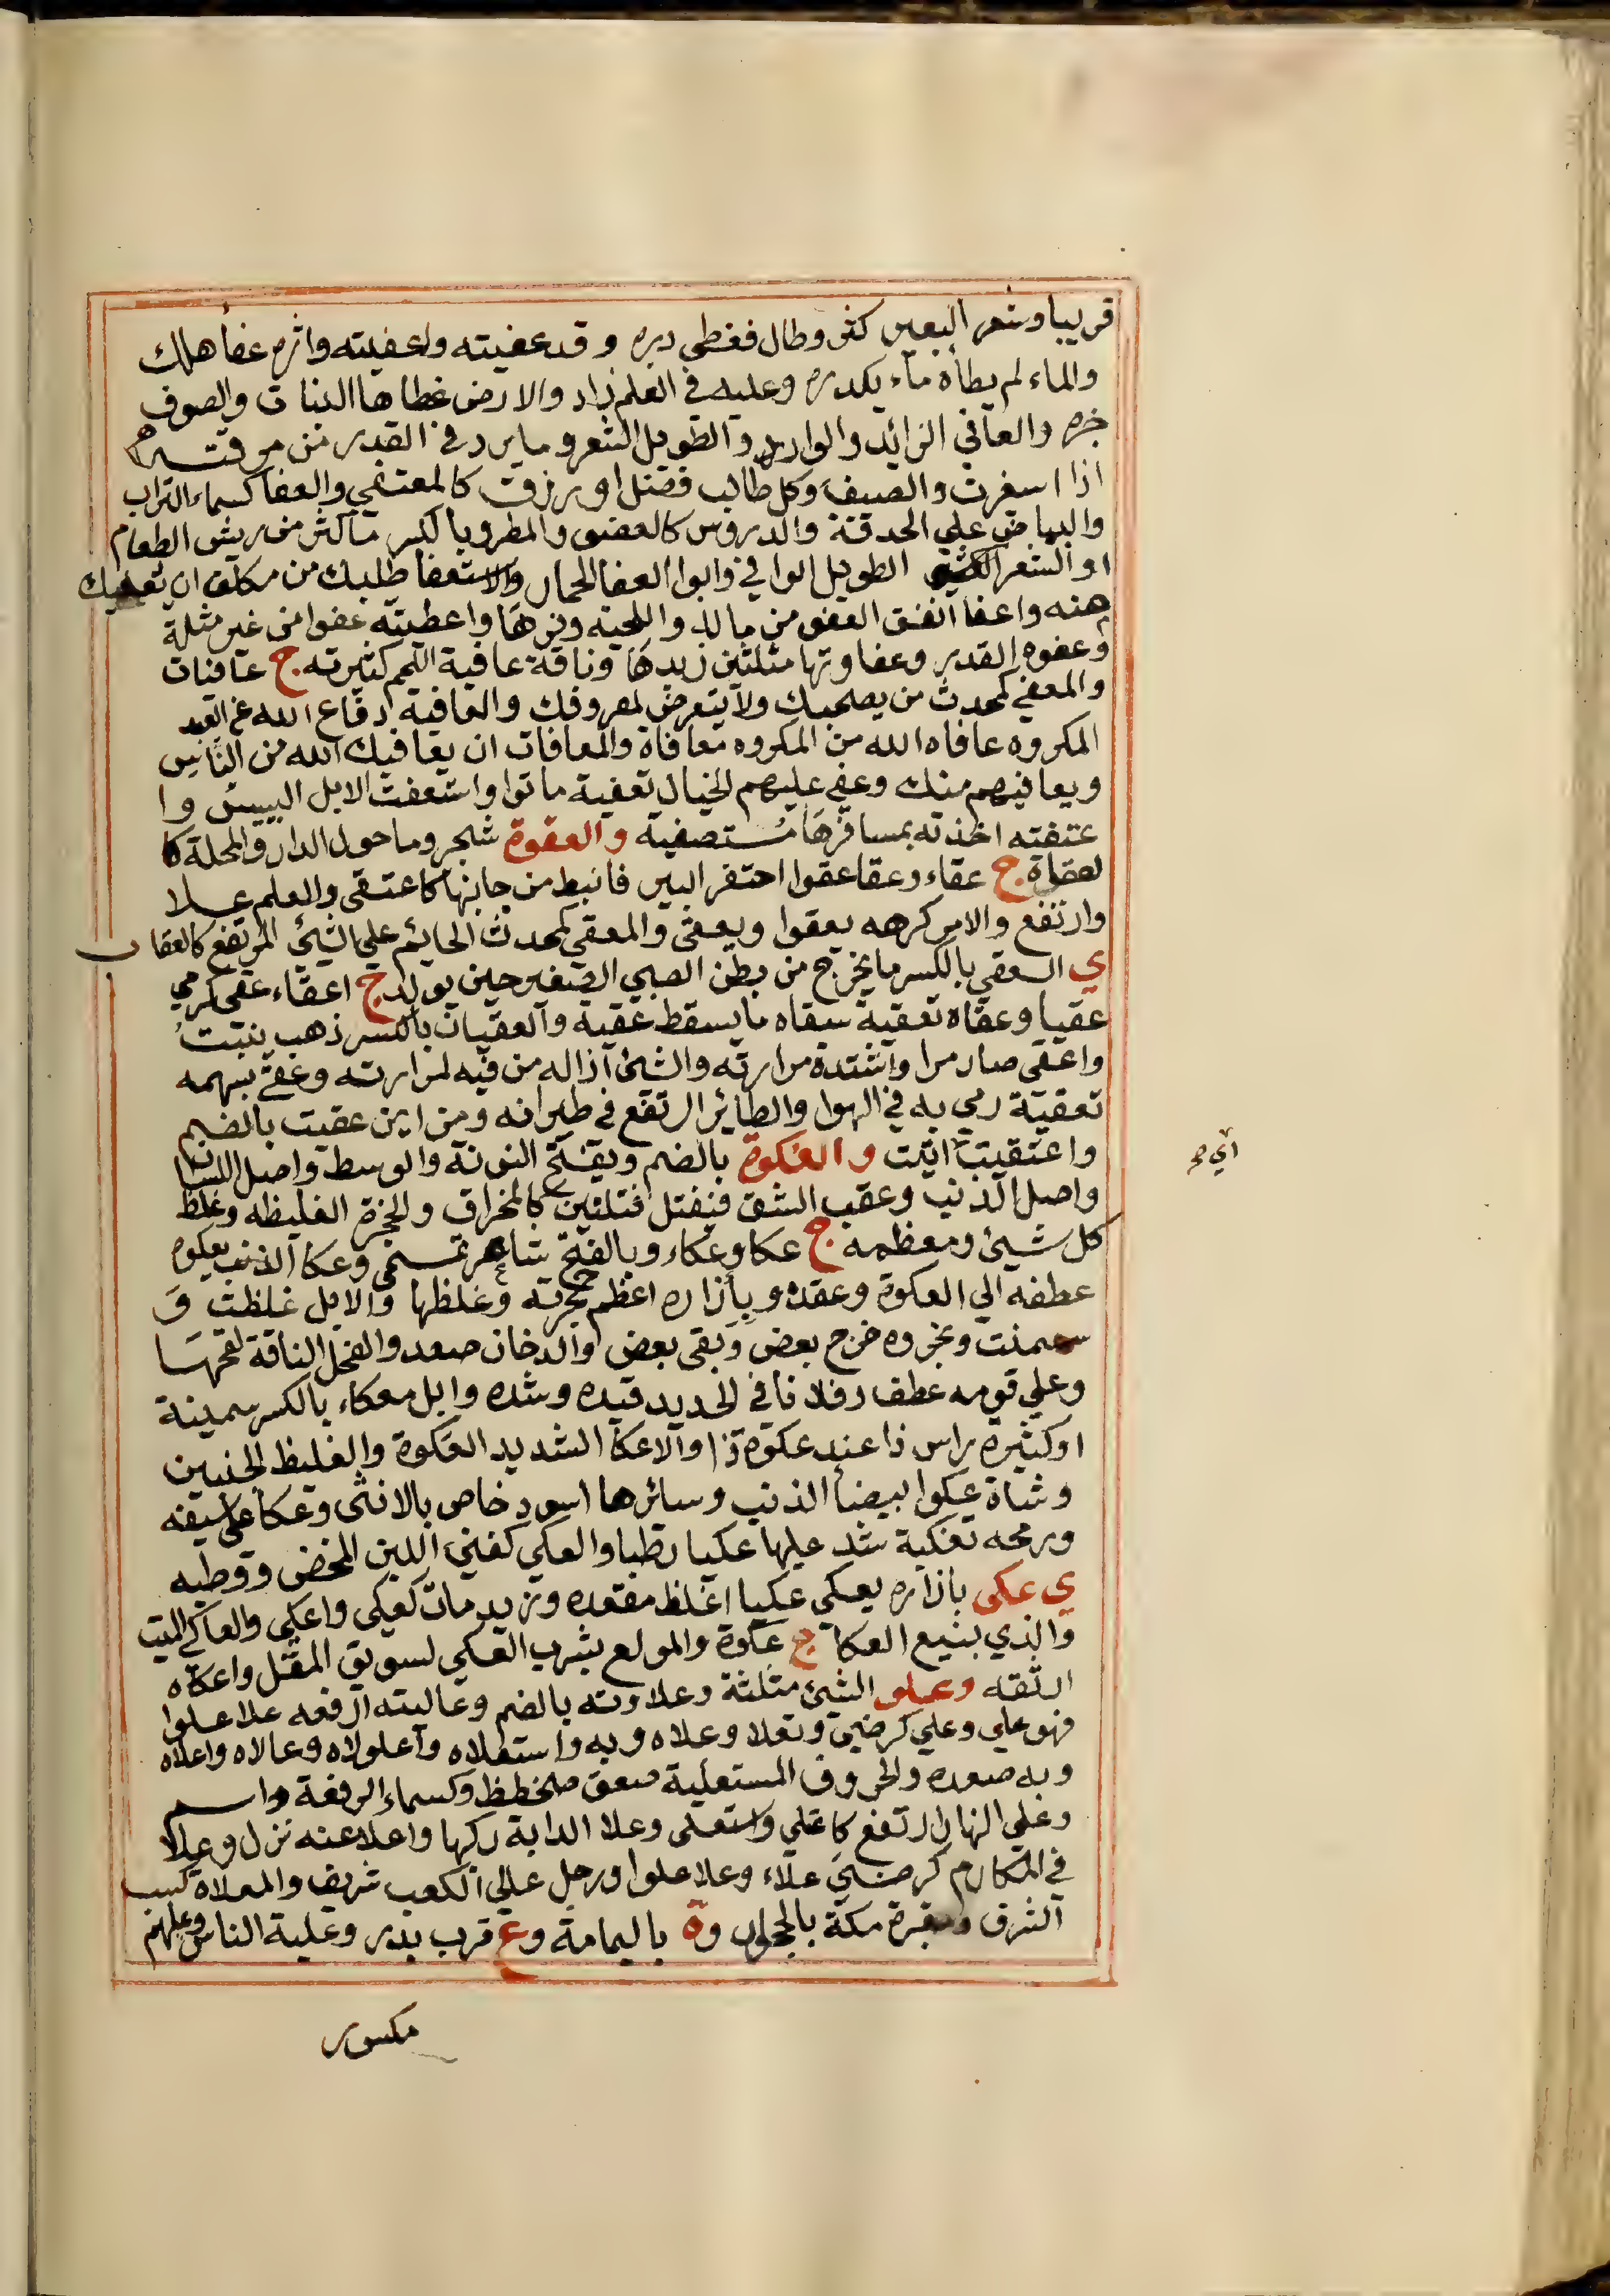 قريبا وشعر البعير كثر وطال فغطى دبره وقد عفيته واعفيته واثره عفا هلك
والماء لم يطأه ماء يكدره وعليه في العلم زاد والارض غطاها النبات والصوف
جزه والعافي الزائد والوارد والطويل الشعر وما يرد في القدر من مرقته
اذا استعيرت والضيف وكل طالب فضل او رزق كالمعتفي والعفا كسماء التراب
والبياض على الحدقة والدروس كالعفو والمطر وبالكسر ما كثر من ريش النعام
او الشعر الطويل الوافي وابوا العفا الحمار والاستعفا طلبك من مكلف ان يعفيك
منه واعفا انفق العفو من ماله واللحية وفرها واعطيته عفوا من غير مثلة
وعفوه القدر وعفاوتها مثلثين زبدها وناقة عافية اللحم كثيرته ج عافيات
والمعفي كمحدث من يصحبك ولا يتعرض لمعروفك والعافية دفاع الله عن العبد
المكروه عافاه الله من المكروه معافاة والمعافات ان يعافيك الله من الناس
ويعافيهم منك وعفي عليهم الخيال تعفية ماتوا واستعفت الابل اليبيس وا
عتفته اخذته بمسافرها مستصفية والعقوة شجر وما حول الدار والمحلة كا
لعقاة ج عقاء وعقا عقوا احتفر البير فانبط من جانبها كاعتقى والعلم علا
وارتفع والامر كرهه يعقوا ويعقى والمعقي كمحدث الحايم على الشئ المرتفع كالعقاب
ي العقي بالكسر ما يخرج من بطن الصبي الصغير حين يولد ج اعقاء عقى كرمي
عقيا وعقاه تعقية سقاه ما يسقط عقيه والعقيان بالكسر ذهب ينبت
واعقى صار مرا واشتدة مرارته والشئ ازاله من فيه لمرارته وعقى بسهمه
تعقية رمي به في الهوا والطائر ارتفع في طيرانه ومن اين عقيت بالضم
واعتقيت اتيت والعكوة بالضم ويفتح النونة والوسط واصل اللسان
واصل الذنب وعقب الشق فيفتل فتلتين كالمخراق والحجزة الغليظه وغلظ
كل شيئ ومعظمه ج عكا وعكاء وبالفتح شاعر تسمى وعكا الذنب يعكوه
عطفه الى العكوة وعقده وبأزاره اعظم حجزته وغلظها والابل غلظت و
سمنت وبخروه خرج بعض وبقى بعض والدخان صعد والفحل الناقة لقحها
وعلى قومه عطف وفلانا في الحديد قيده وشده وابل معكاء بالكسر سمينة
او كثيرة راس ذا عند عكوة ذا والاعكا الشديد العكوة والغليظ الجنبين
وشاة عكوا بيضا الذنب وسائرها اسود خاص بالانثى وعكا على سيفه
ورمحه تعكية شد عليها عكيا رطبا والعكي كغني اللبن المخض ووطبه
ي عكى بأزاره يعكى عكيا اغلظ معقده وزيد مات كعكى واعكى والعاكي الميت
والذي يبيع العكا ج عكوة والمولع بشرب العكي لسويق المقل واعكاه
اثقه وعلو الشئ مثلثة وعلاوته بالضم وعاليته ارفعه علا علوا
فهو علي وعلي كرضي وتعلا وعلاه وبه واستعلاه واعلولاه وعالاه واعلاه
وبه صعده والحروف المستعلية صعق ضخطظ وكسماء الرفعة واسم
وعلى النهار ارتفع كاعتلى واستعلى وعلا الدابة ركبها واعلا عنه نزل وعلا
في المكارم كرضي علاء وعلا علوا ورجل عالي الكعب شريف والمعلاة كسب
الشرف ومقبرة مكة بالحجون وة باليمامة وع قرب بدر وعلية الناس وعليهم
مكسور